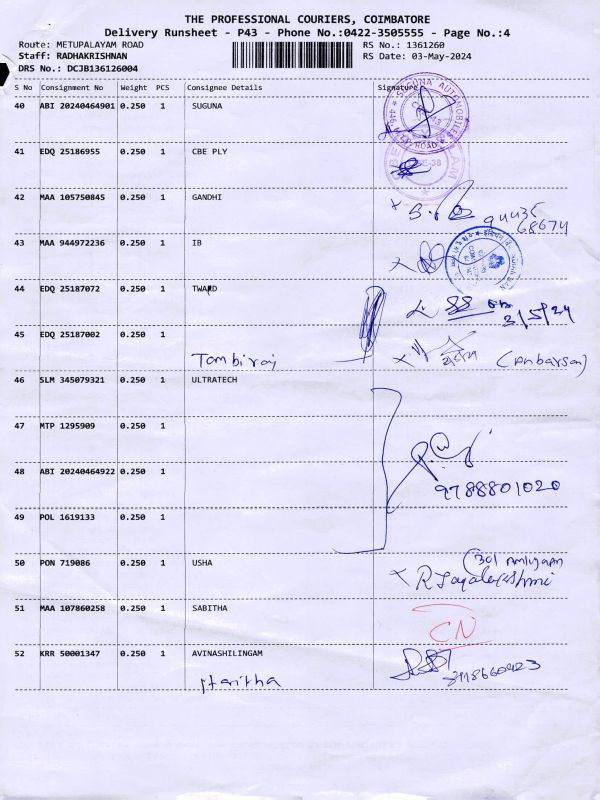 THE PROFESSIONAL COURIERS, COIMBATORE
Delivery Runsheet - P43 - Phone No.:0422-3505555 - Page No.:4
Route: METUPALAYAM ROAD
RS No.: 1361260
Staff: RADHAKRISHNAN
RS Date: 03-May-2024
DRS No.: DCJB136126004
S No Consignment No Weight PCS Consignee Details Signature
40 ABI 20240464901 0.250 1 SUGUNA
SUGUNA AUTOMOBILES
41 EDQ 25186955 0.250 1 CBE PLY
42 MAA 105750845 0.250 1 GANDHI
94435
68674
43 MAA 944972236 0.250 1 IB
44 EDQ 25187072 0.250 1 TWARD
3/5/24
45 EDQ 25187002 0.250 1
Tombiraj
(Anbarsan)
46 SLM 345079321 0.250 1 ULTRATECH
47 MTP 1295909 0.250 1
48 ABI 20240464922 0.250 1
9788801020
49 POL 1619133 0.250 1
50 PON 719086 0.250 1 USHA
51 MAA 107860258 0.250 1 SABITHA
CN
52 KRR 50001347 0.250 1 AVINASHILINGAM
Haritha